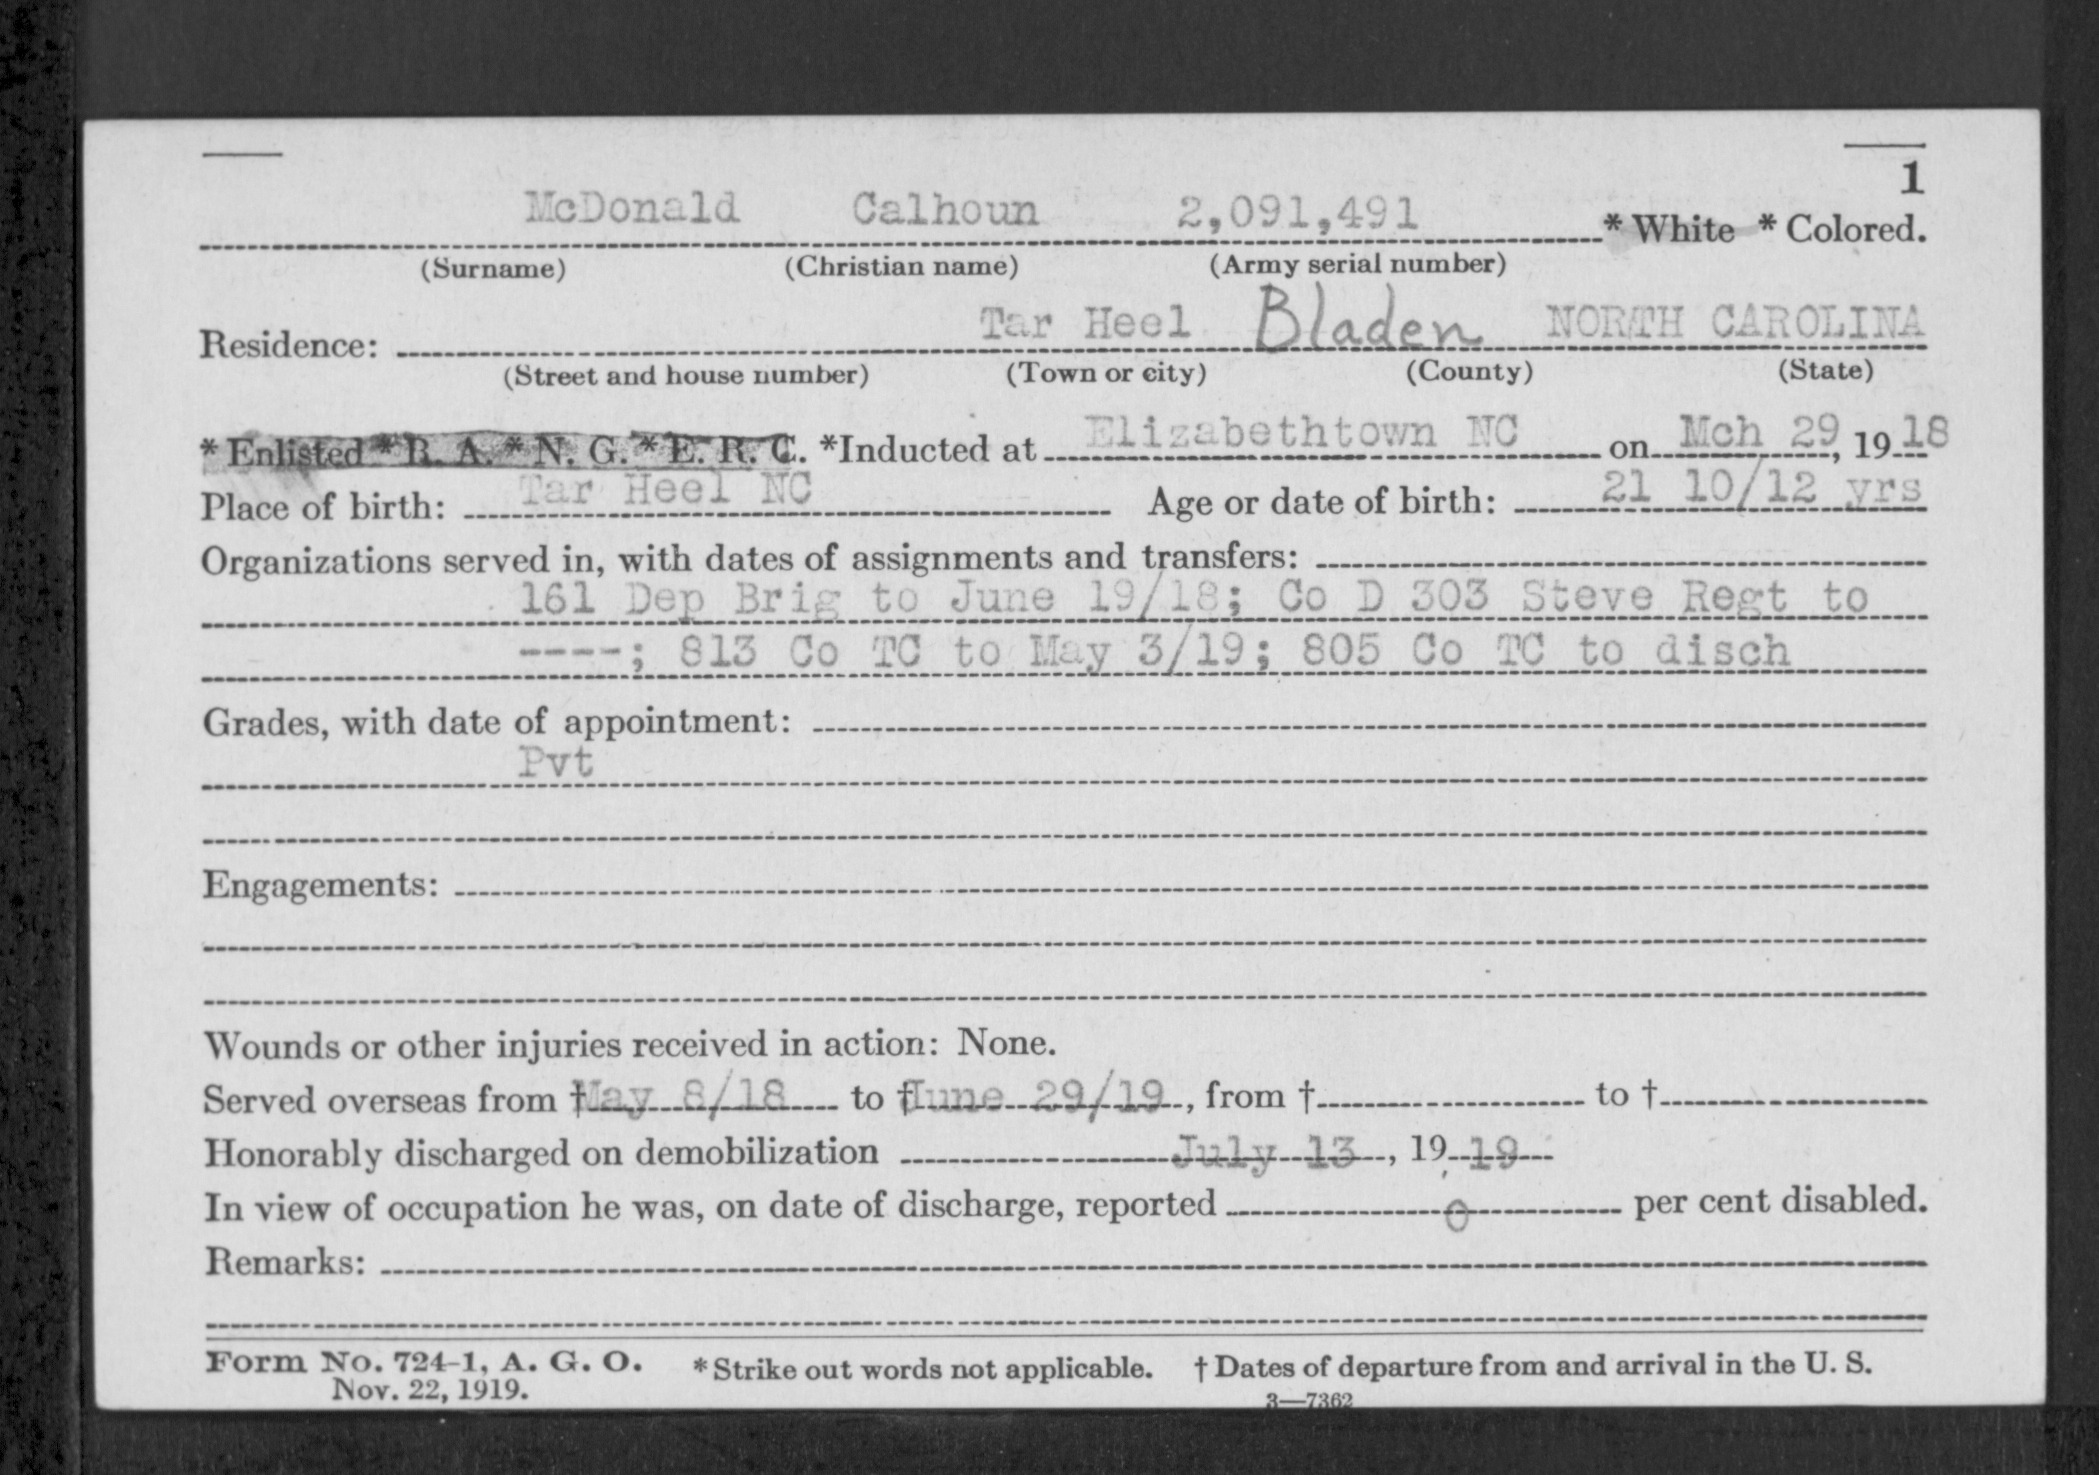 1
McDonald Calhoun 2,091,491 * White * Colored.
(Surname) (Christian name) (Army serial number)
Residence: Tar Heel Bladen NORTH CAROLINA
(Street and house number) (Town or city) (County) (State)
* Enlisted * R. A. * N. G. * E. R. C. *Inducted at Elizabethtown NC on Mch 29, 1918
Place of birth: Tar Heel NC Age or date of birth: 21 10/12 yrs
Organizations served in, with dates of assignments and transfers:
161 Dep Brig to June 19/18; Co D 303 Steve Regt to
----; 813 Co TC to May 3/19; 805 Co TC to disch
Grades, with date of appointment:
Pvt
Engagements:
Wounds or other injuries received in action: None.
Served overseas from † May 8/18 to † June 29/19, from † to †
Honorably discharged on demobilization July 13, 19 19
In view of occupation he was, on date of discharge, reported 0 per cent disabled.
Remarks:
Form No. 724-1, A. G. O. * Strike out words not applicable. † Dates of departure from and arrival in the U. S.
Nov. 22, 1919. 3—7362